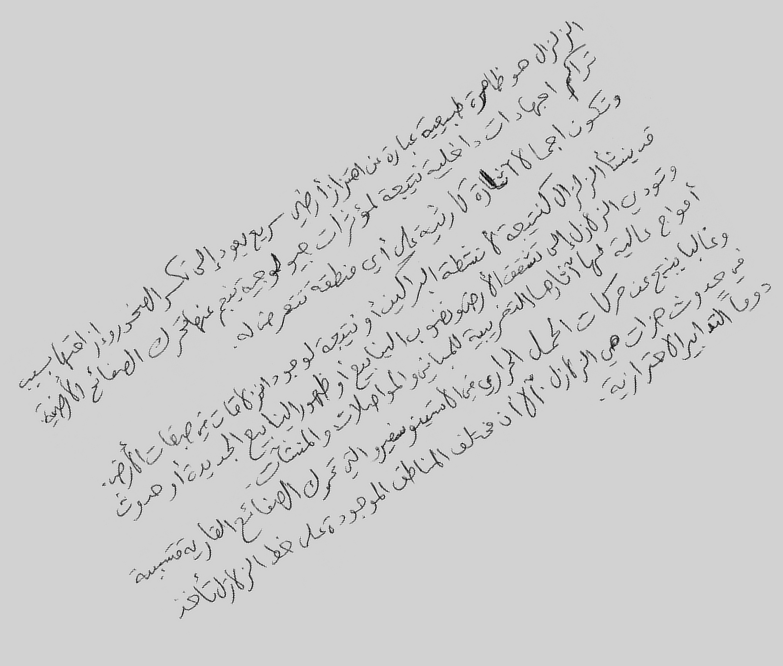 الزلزال هو ظاهرة طبيعية عبارة عن اهتزاز أرضي سريع يعود إلى تكسر الصخور وإزاحتها بسبب
تراكم اجهادات داخلية نتيجة لمؤثرات جيولوجية ينجم عنها تحرك الصفائح الأرضية
وتكون اجمالا آثاره كارثية على أي منطقة تتعرض له.
قد ينشأ الزلزال كنتيجة لأنشطة البراكين أو نتيجة لوجود انزلاقات في طبقات الأرض.
وتودي الزلازل إلى تشقق الأرض ونضوب الينابيع أو ظهور الينابيع الجديدة أو حدوث
أمواج عالية لها آثارها التخريبية للمباني والمواصلات والمنشآت.
وغالبا ينتج عن حركات الحمل الحراري في الأسينوسفير والتي تحرك الصفائح القارية متسببة
في حدوث هزات هي الزلازل. الا أن مختلف المناطق الموجودة على خط الزلازل تأخذ
دوماً التدابير الاحترازية.